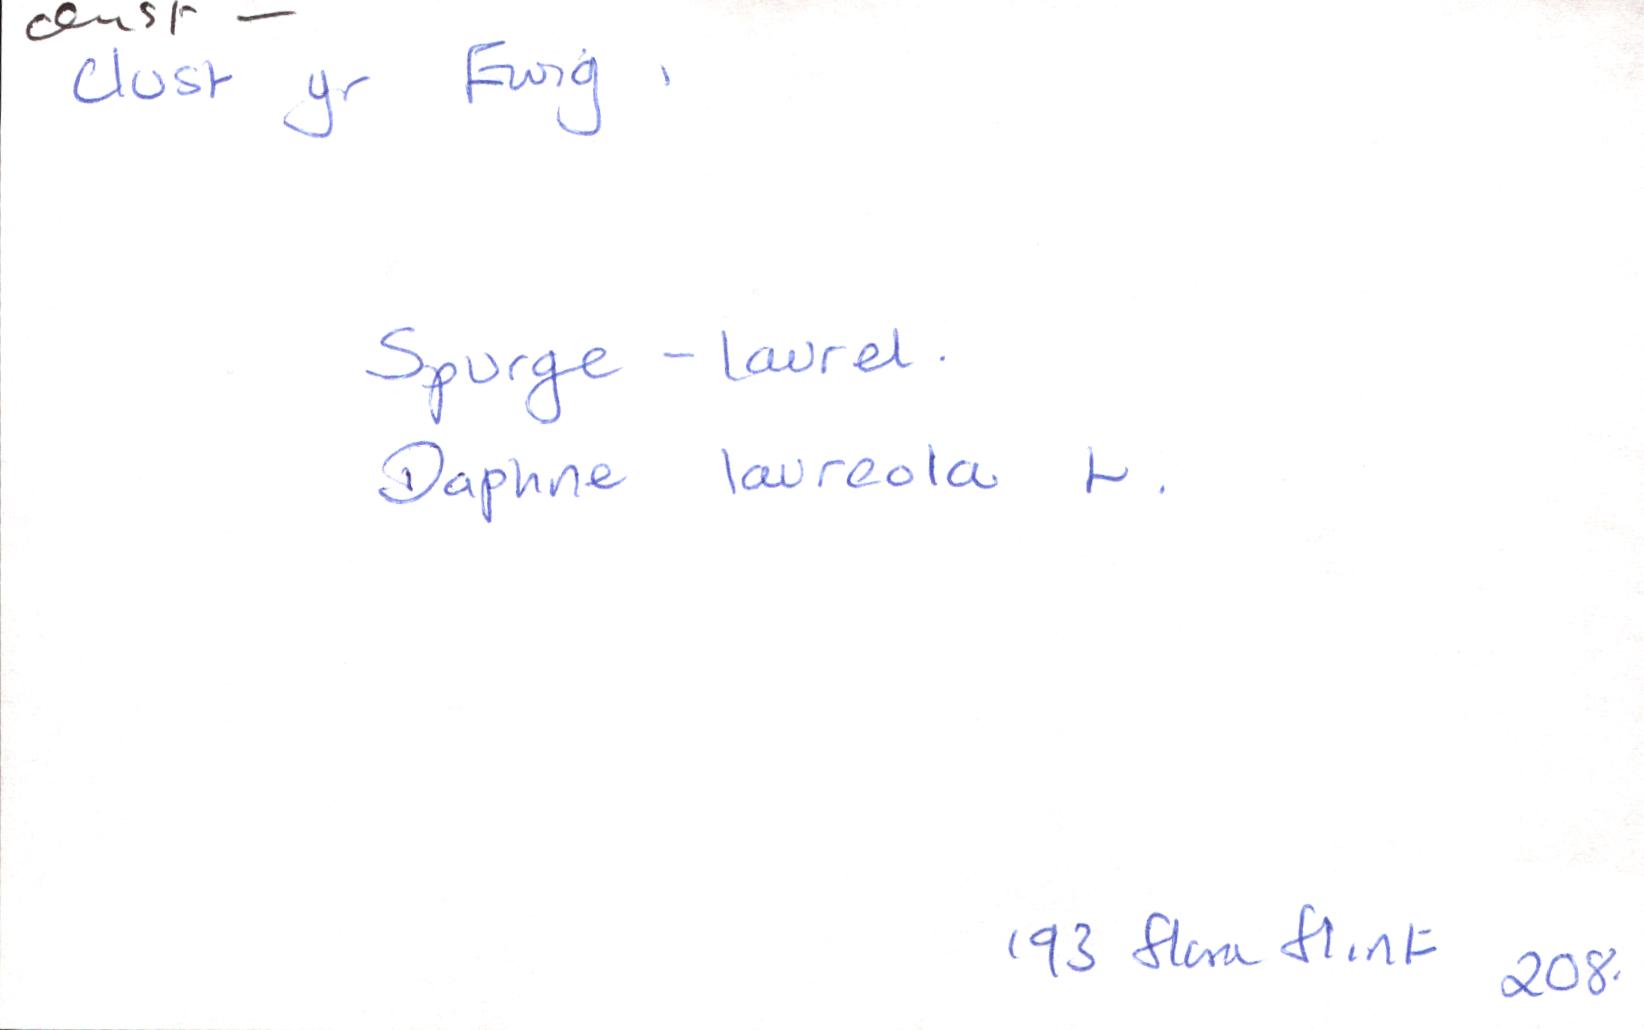 clust —
Clust yr Ewig,
Spurge - laurel.
Daphne laureola L.
'93 Flora Flint 208.